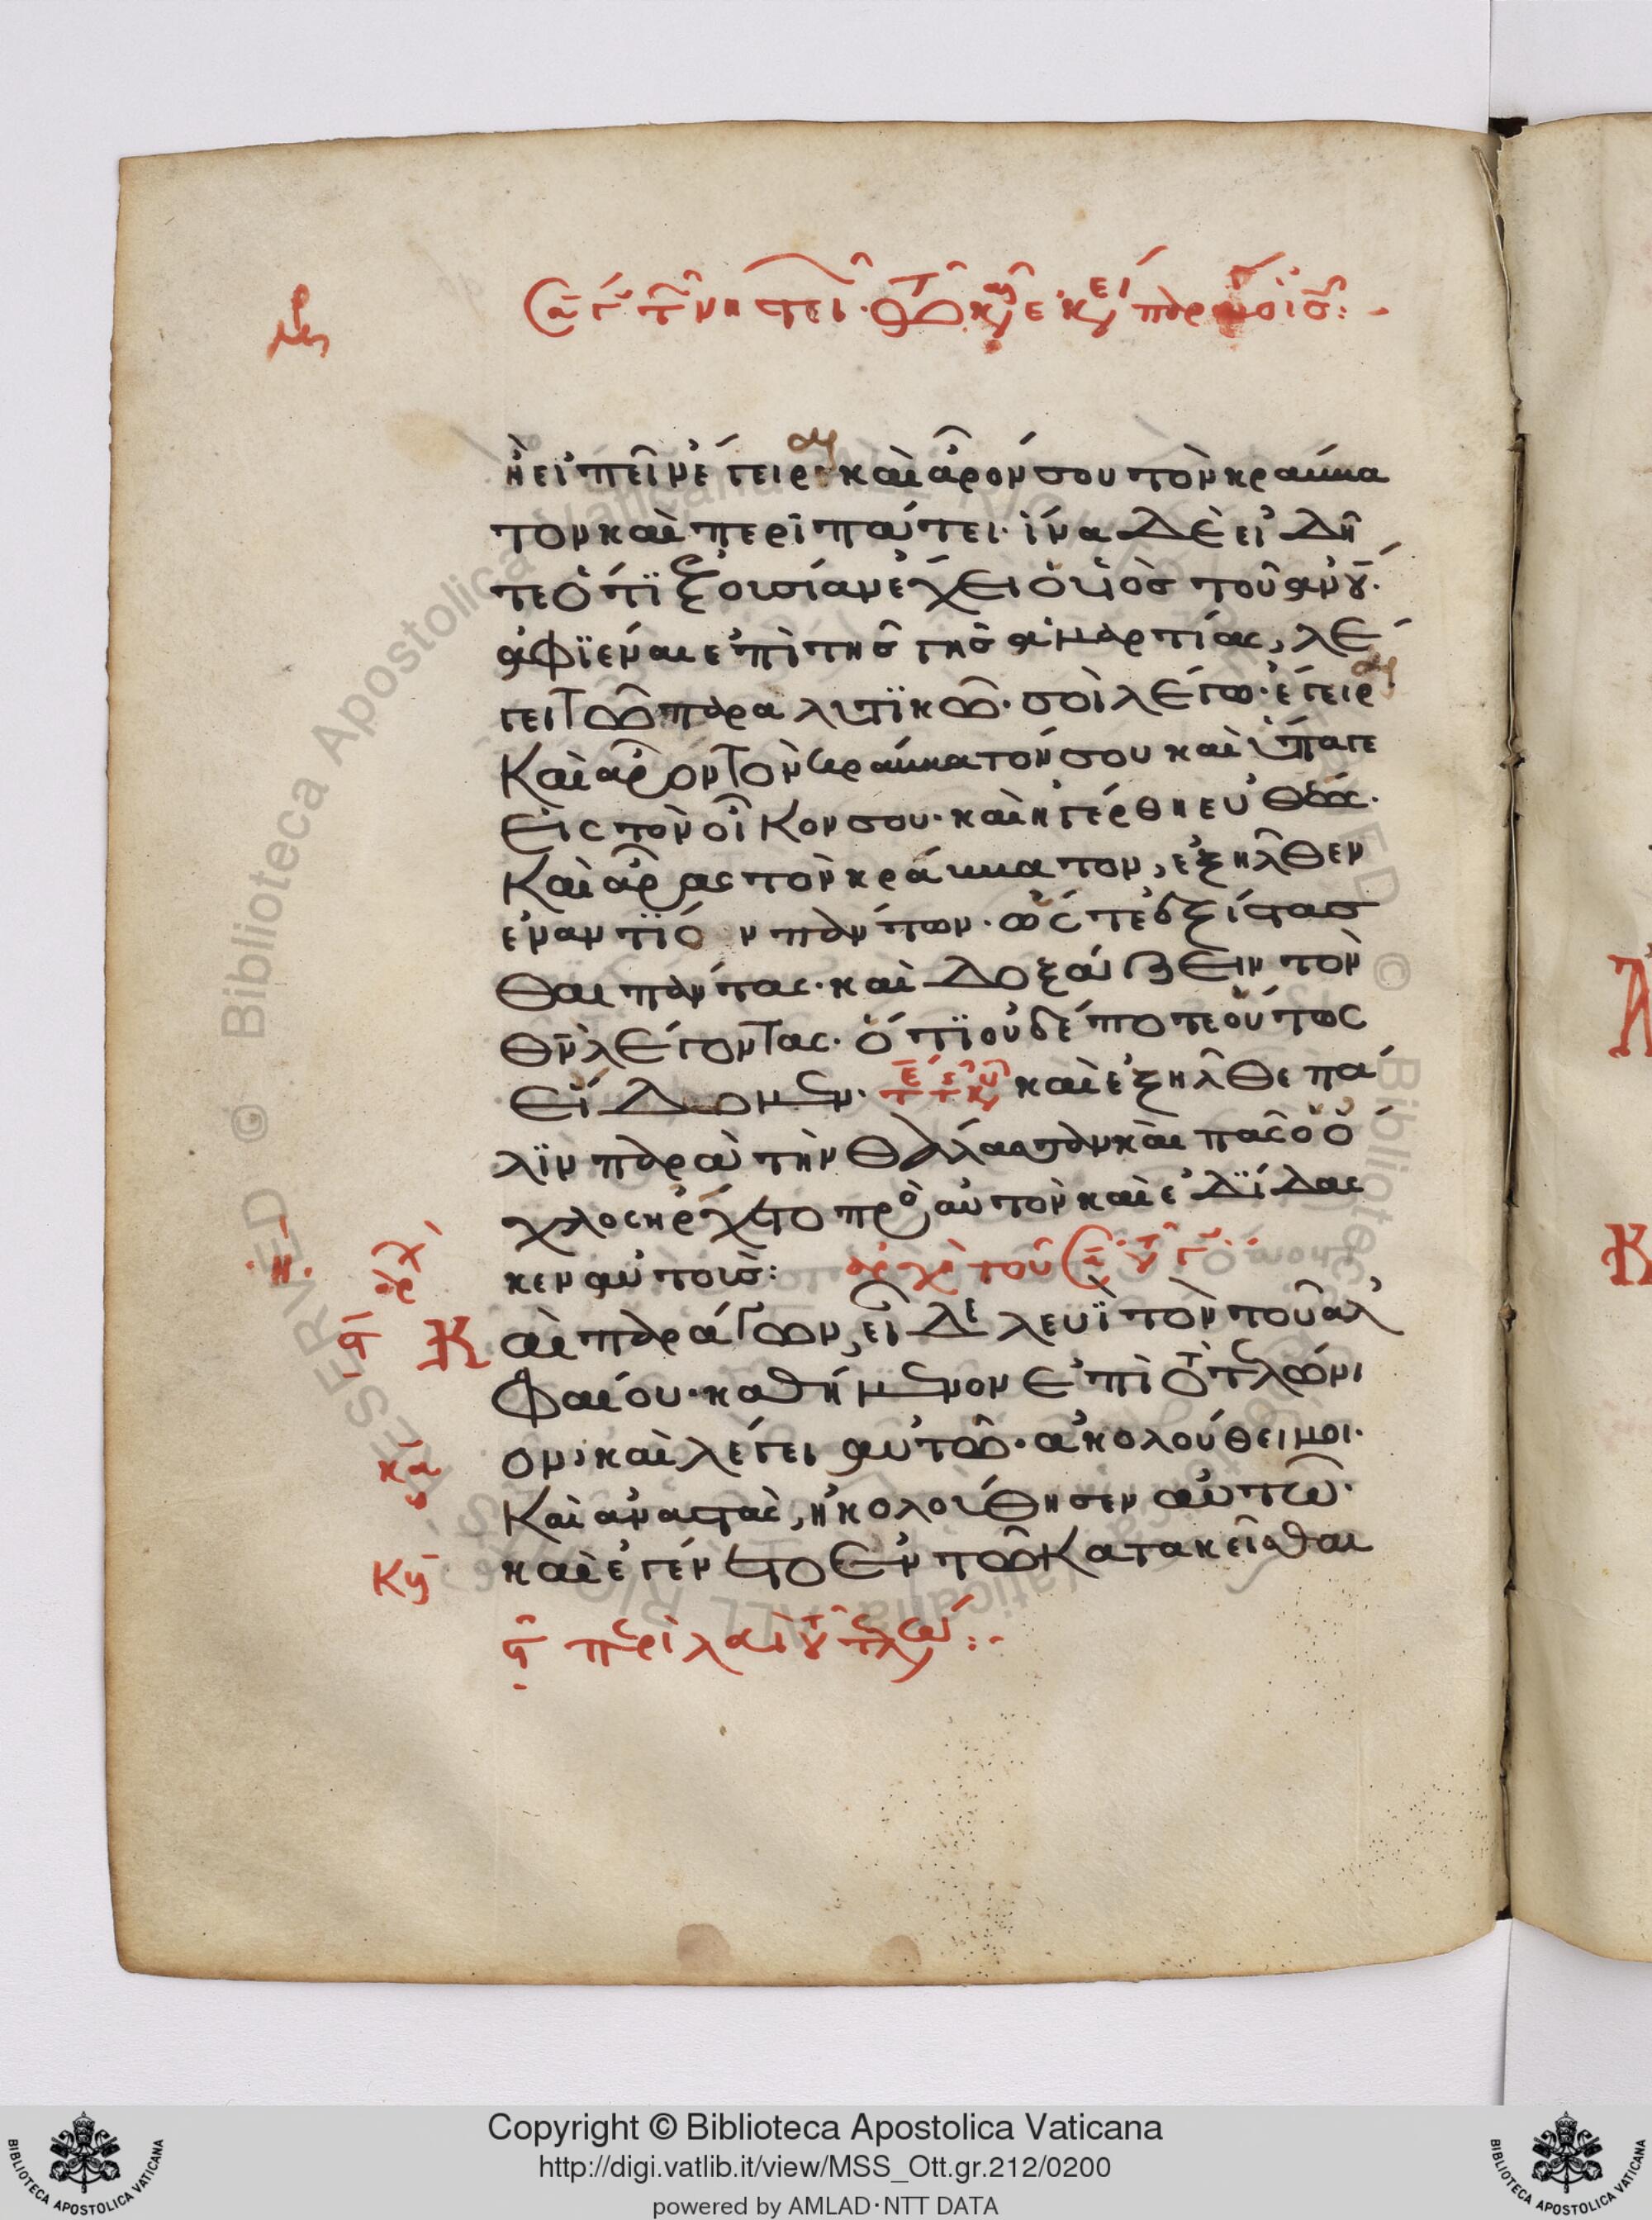 ἢ εἰπεῖν ἔγειραι καὶ ἆρόν σου τὸν κράββα
τον καὶ περιπάτει· ἵνα δὲ εἰδῆ
τε ὅτϊ ἐξουσίαν ἔχει ὁ υἱὸσ τοῦ ἀνου·
ἀφϊέναι ἐπὶ τῆσ γῆσ ἁμαρτίας, λέ
γει τῶ παραλυτϊκῶ· σοὶ λέγω· ἔγειραι
Καὶ ἆρον τὸν κράββατόν σου καὶ ὕπαγε
εἰς τὸν οἶκον σου· καὶ ἠγέρθη εὐθέως·
Καὶ ἄρας τὸν κράββατον, ἐξῆλθεν
ἐναντϊόν πάντων· ὥστε ἐξίστασ
θαι πάντας· καὶ δοξάζειν τὸν
θν λέγοντας· ὅτϊ οὐδέποτε οὕτως
εἴδομεν· καὶ ἐξῆλθε πά
λϊν παρὰ τὴν θάλασσαν καὶ πᾶς ὁ ὄ
χλος ἤρχετο πρὸς αὐτὸν καὶ ἐδϊδας
κεν αὐτοισ: ἀρχὴ τοῦ
Καὶ παράγων, εἶδε λευϊ τὸν τοῦ ἀλ
φαίου· καθήμενον ἐπὶ τὸ τελώνι
ον, καὶ λέγει αὐτῶ· ἀκολούθει μοι·
Καὶ ἀναστὰς, ἠκολούθησεν αὐτῶ·
καὶ ἐγένετο ἐν τῶ κατακεῖσθαι
Copyright © Biblioteca Apostolica Vaticana
http://digi.vatlib.it/view/MSS_Ott.gr.212/0200
powered by AMLAD·NTT DATA
BIBLIOTECA APOSTOLICA VATICANA
BIBLIOTECA APOSTOLICA VATICANA